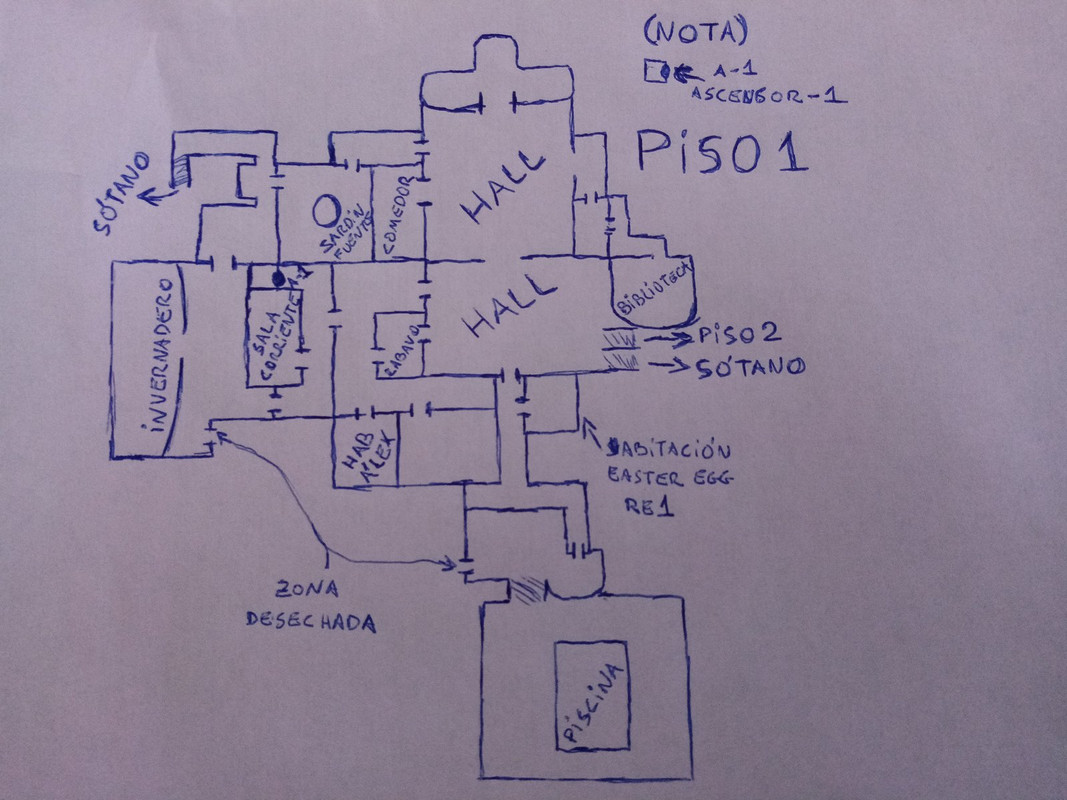 (NOTA)
A-1
ASCENSOR-1
PiSO1
SÓTANO
HALL
COMEDOR
JARDÍN
FUENTE
HALL
BiBLiOTECA
iNVERNADERO
SALA
CORRiENTE
A-1
LAVABO
PiSO2
SÓTANO
HAB
ÁLEX
HABiTACIÓN
EASTER EGG
RE1
ZONA
DESECHADA
PiSCiNA